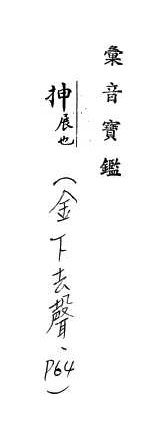 彙音寶鑑
抻展也(金下去聲、P64)